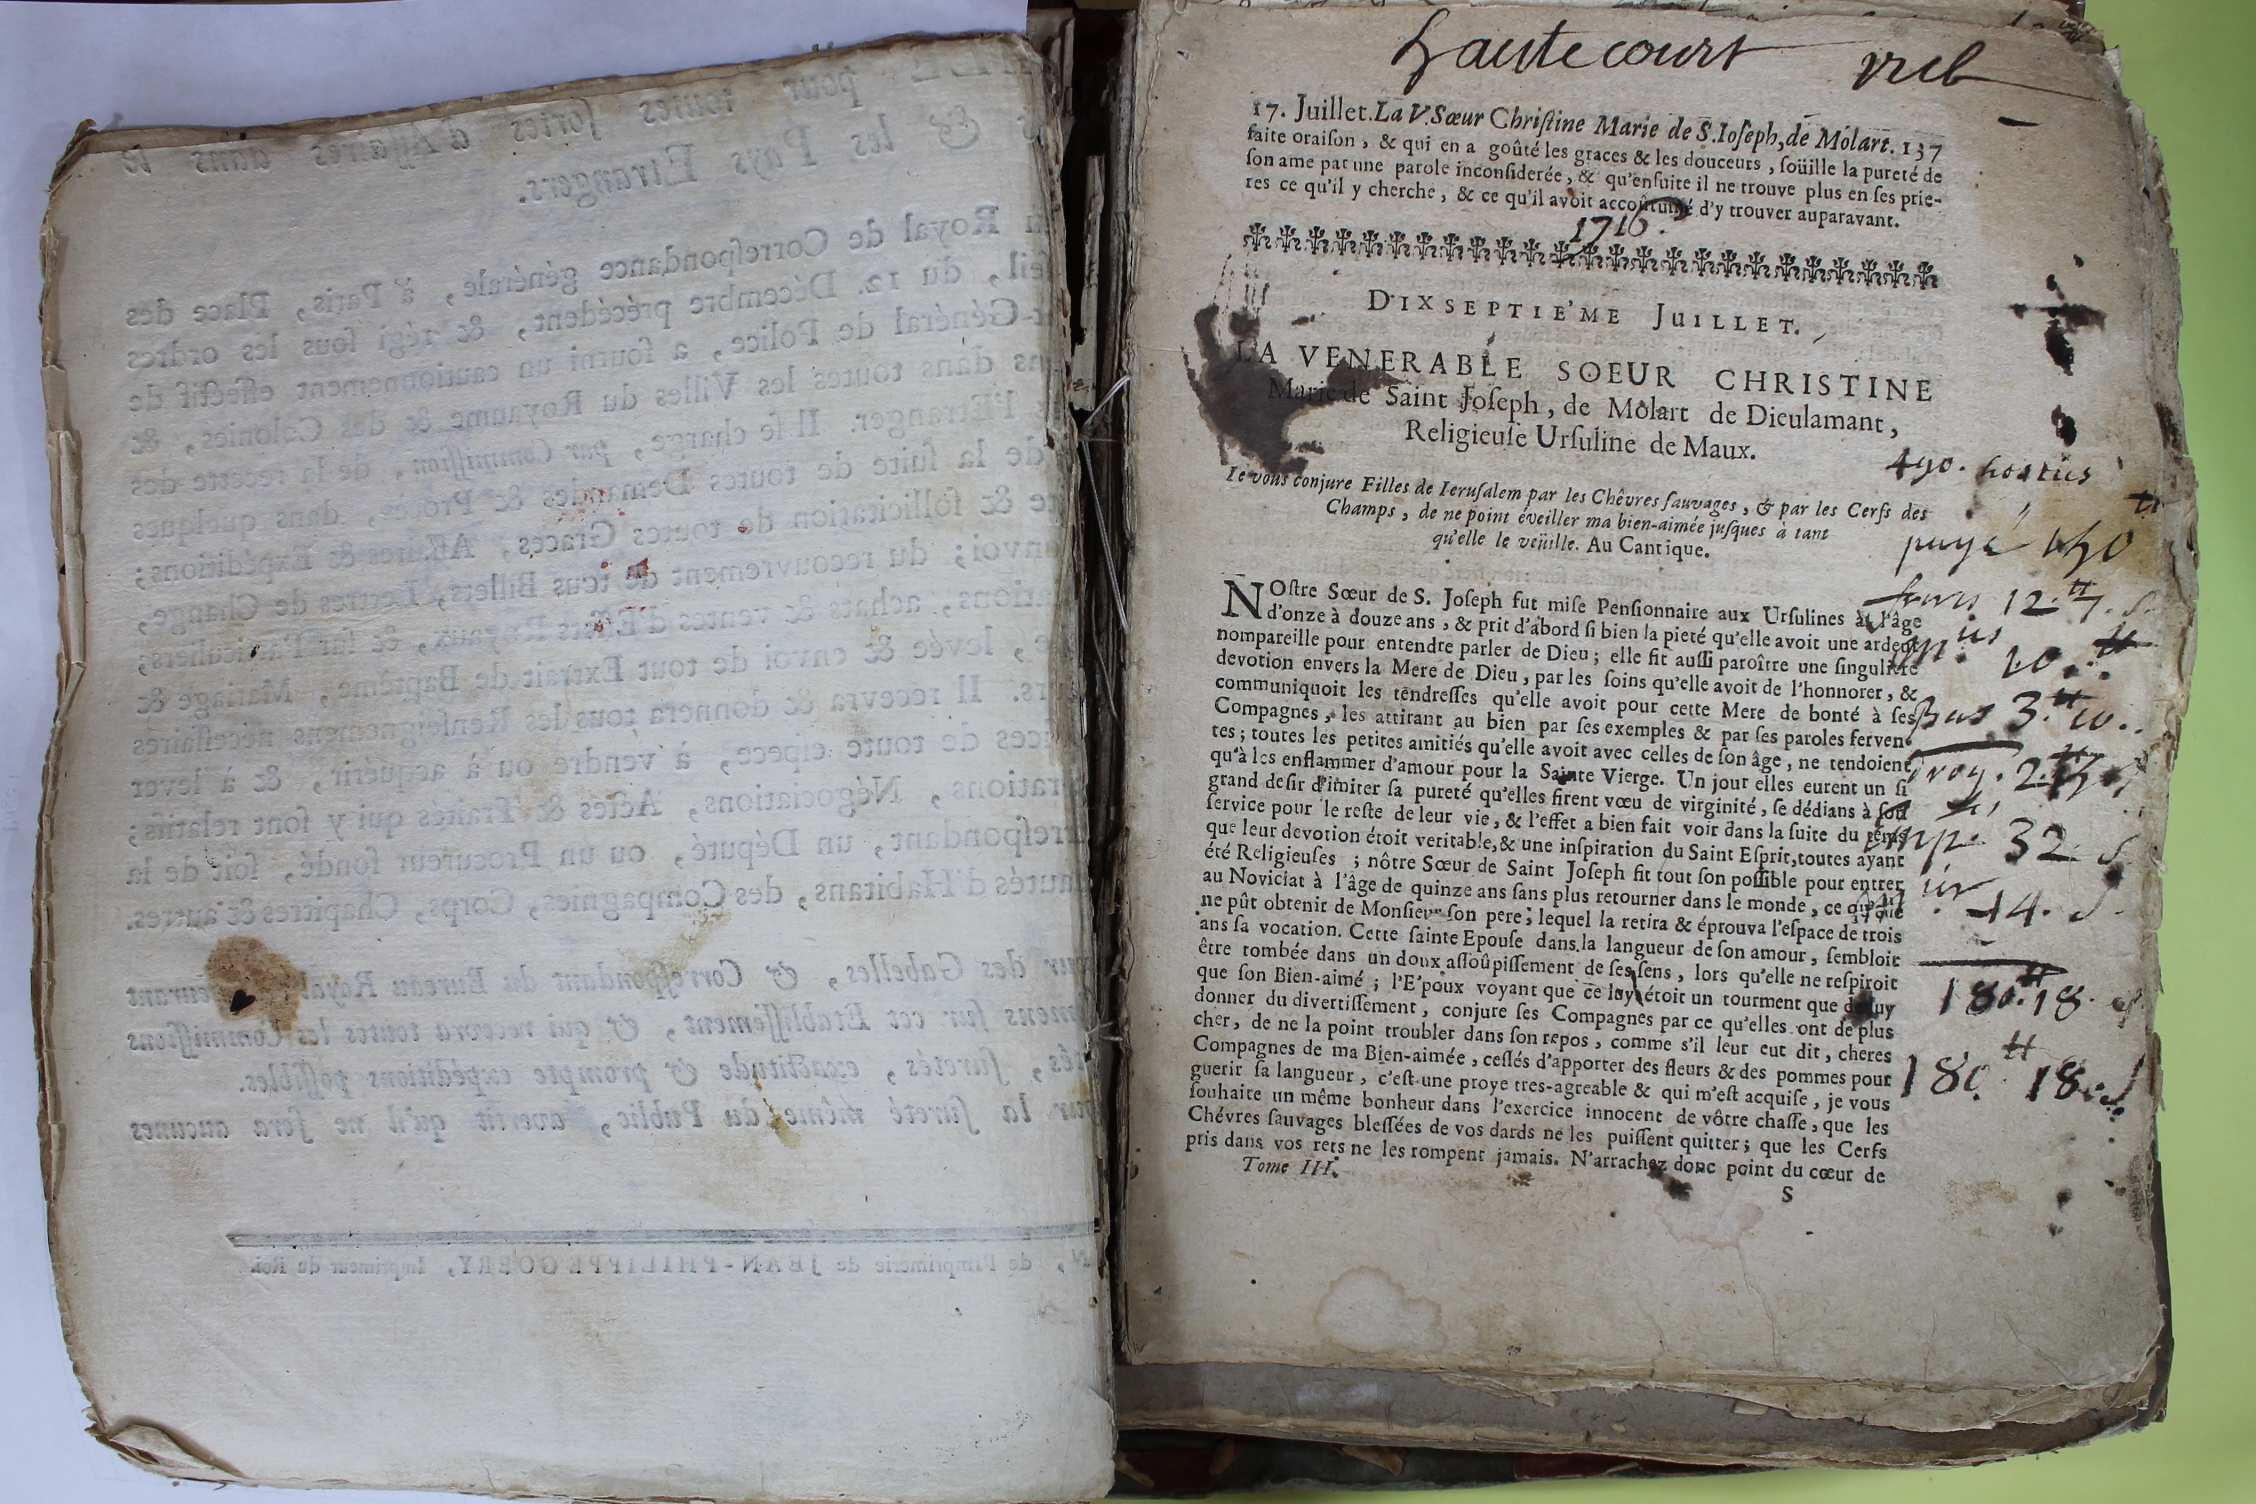 pour toutes sortes d'Affaires dans le
& les Pays Etrangers.
Royal de Correspondance générale, à Paris, Place des
du 12. Décembre précédent, & régi sous les ordres
Général de Police, a fourni un cautionnement effectif de
dans toutes les Villes du Royaume & des Colonies, &
l'Etranger. Il se charge, par Commission, de la recette des
de la suite de toutes Demandes & Procès, dans quelques
& sollicitation de toutes Graces, Affaires & Expéditions;
du recouvrement de tous Billets, Lettres de Change,
achats & ventes d'Effets Royaux, & sur Particuliers;
levée & envoi de tout Extrait de Baptême, Mariage &
Il recevra & donnera tous les Renseignemens nécessaires
de toute espece, à vendre ou à acquérir, & à lever
Négociations, Actes & Traités qui y sont relatifs;
un Député, ou un Procureur fondé, soit de la
d'Habitans, des Compagnies, Corps, Chapitres & autres.
des Gabelles, & Correspondant du Bureau Royal,
sur cet Etablissement, & qui recevra toutes les Commissions
suretés, exactitude & prompte expéditions possibles.
la sureté même du Public, avertit qu'il ne sera aucunes
de l'Imprimerie de JEAN-PHILIPPE GOBRY, Imprimeur du Roi.
hautecourt
17. Juillet. La V. Sœur Christine Marie de S. Ioseph, de Molart. 137
faite oraison, & qui en a goûté les graces & les douceurs, soüille la pureté de
son ame par une parole inconsiderée, & qu'ensuite il ne trouve plus en ses prie-
res ce qu'il y cherche, & ce qu'il avoit accoûtumé d'y trouver auparavant.
1716.
DIXSEPTIE'ME JUILLET.
LA VENERABLE SOEUR CHRISTINE
Marie de Saint Joseph, de Molart de Dieulamant,
Religieuse Ursuline de Maux.
490. hosties
Ie vous conjure Filles de Ierusalem par les Chêvres sauvages, & par les Cerfs des
Champs, de ne point éveiller ma bien-aimée jusques à tant
qu'elle le veüille. Au Cantique.
NOstre Sœur de S. Joseph fut mise Pensionnaire aux Ursulines à l'âge
d'onze à douze ans, & prit d'abord si bien la pieté qu'elle avoit une ardeur
nompareille pour entendre parler de Dieu; elle fit aussi paroître une singuliere
devotion envers la Mere de Dieu, par les soins qu'elle avoit de l'honnorer, &
communiquoit les tendresses qu'elle avoit pour cette Mere de bonté à ses
Compagnes, les attirant au bien par ses exemples & par ses paroles ferven-
tes; toutes les petites amitiés qu'elle avoit avec celles de son âge, ne tendoient
qu'à les enflammer d'amour pour la Sainte Vierge. Un jour elles eurent un si
grand desir d'imiter sa pureté qu'elles firent vœu de virginité, se dédians à son
service pour le reste de leur vie, & l'effet a bien fait voir dans la suite du tems
que leur devotion étoit veritable, & une inspiration du Saint Esprit, toutes ayant
été Religieuses; nôtre Sœur de Saint Joseph fit tout son possible pour entrer
au Noviciat à l'âge de quinze ans sans plus retourner dans le monde, ce qu'elle
ne pût obtenir de Monsieur son pere; lequel la retira & éprouva l'espace de trois
ans sa vocation. Cette sainte Epouse dans la langueur de son amour, sembloit
être tombée dans un doux assoûpissement de ses sens, lors qu'elle ne respiroit
que son Bien-aimé; l'E'poux voyant que ce luy étoit un tourment que de luy
donner du divertissement, conjure ses Compagnes par ce qu'elles ont de plus
cher, de ne la point troubler dans son repos, comme s'il leur eut dit, cheres
Compagnes de ma Bien-aimée, cessés d'apporter des fleurs & des pommes pour
guerir sa langueur, c'est une proye tres-agreable & qui m'est acquise, je vous
souhaite un même bonheur dans l'exercice innocent de vôtre chasse, que les
Chévres sauvages blessées de vos dards ne les puissent quitter; que les Cerfs
pris dans vos rets ne les rompent jamais. N'arrachez donc point du cœur de
Tome III.
S
payé
12.tt 7. s.
10.tt
Bus 3.tt 10.
32. s
14. s
180.tt 18. s
180.tt 18. s.